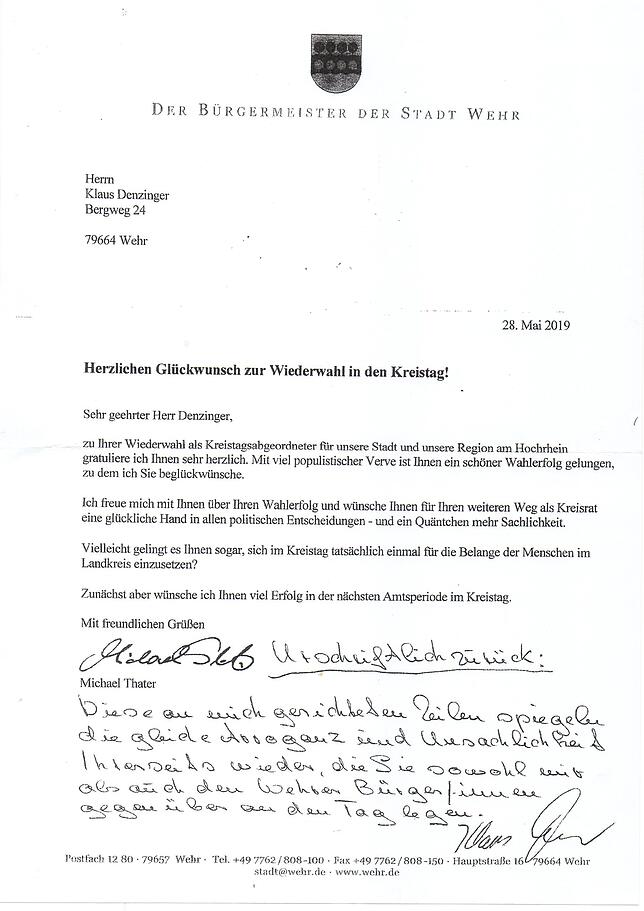 DER BÜRGERMEISTER DER STADT WEHR
Herrn
Klaus Denzinger
Bergweg 24
79664 Wehr
28. Mai 2019
Herzlichen Glückwunsch zur Wiederwahl in den Kreistag!
Sehr geehrter Herr Denzinger,
zu Ihrer Wiederwahl als Kreistagsabgeordneter für unsere Stadt und unsere Region am Hochrhein
gratuliere ich Ihnen sehr herzlich. Mit viel populistischer Verve ist Ihnen ein schöner Wahlerfolg gelungen,
zu dem ich Sie beglückwünsche.
Ich freue mich mit Ihnen über Ihren Wahlerfolg und wünsche Ihnen für Ihren weiteren Weg als Kreisrat
eine glückliche Hand in allen politischen Entscheidungen - und ein Quäntchen mehr Sachlichkeit.
Vielleicht gelingt es Ihnen sogar, sich im Kreistag tatsächlich einmal für die Belange der Menschen im
Landkreis einzusetzen?
Zunächst aber wünsche ich Ihnen viel Erfolg in der nächsten Amtsperiode im Kreistag.
Mit freundlichen Grüßen
Urschriftlich zurück:
Michael Thater
Diese an mich gerichteten Zeilen spiegeln
die gleiche Arroganz und Unsachlichkeit
Ihrerseits wieder, die Sie sowohl mir
als auch den Wehrer Bürger/innen
gegenüber an den Tag legen.
Postfach 12 80 · 79657 Wehr · Tel. +49 7762/808-100 · Fax +49 7762/808-150 · Hauptstraße 16 79664 Wehr
stadt@wehr.de · www.wehr.de